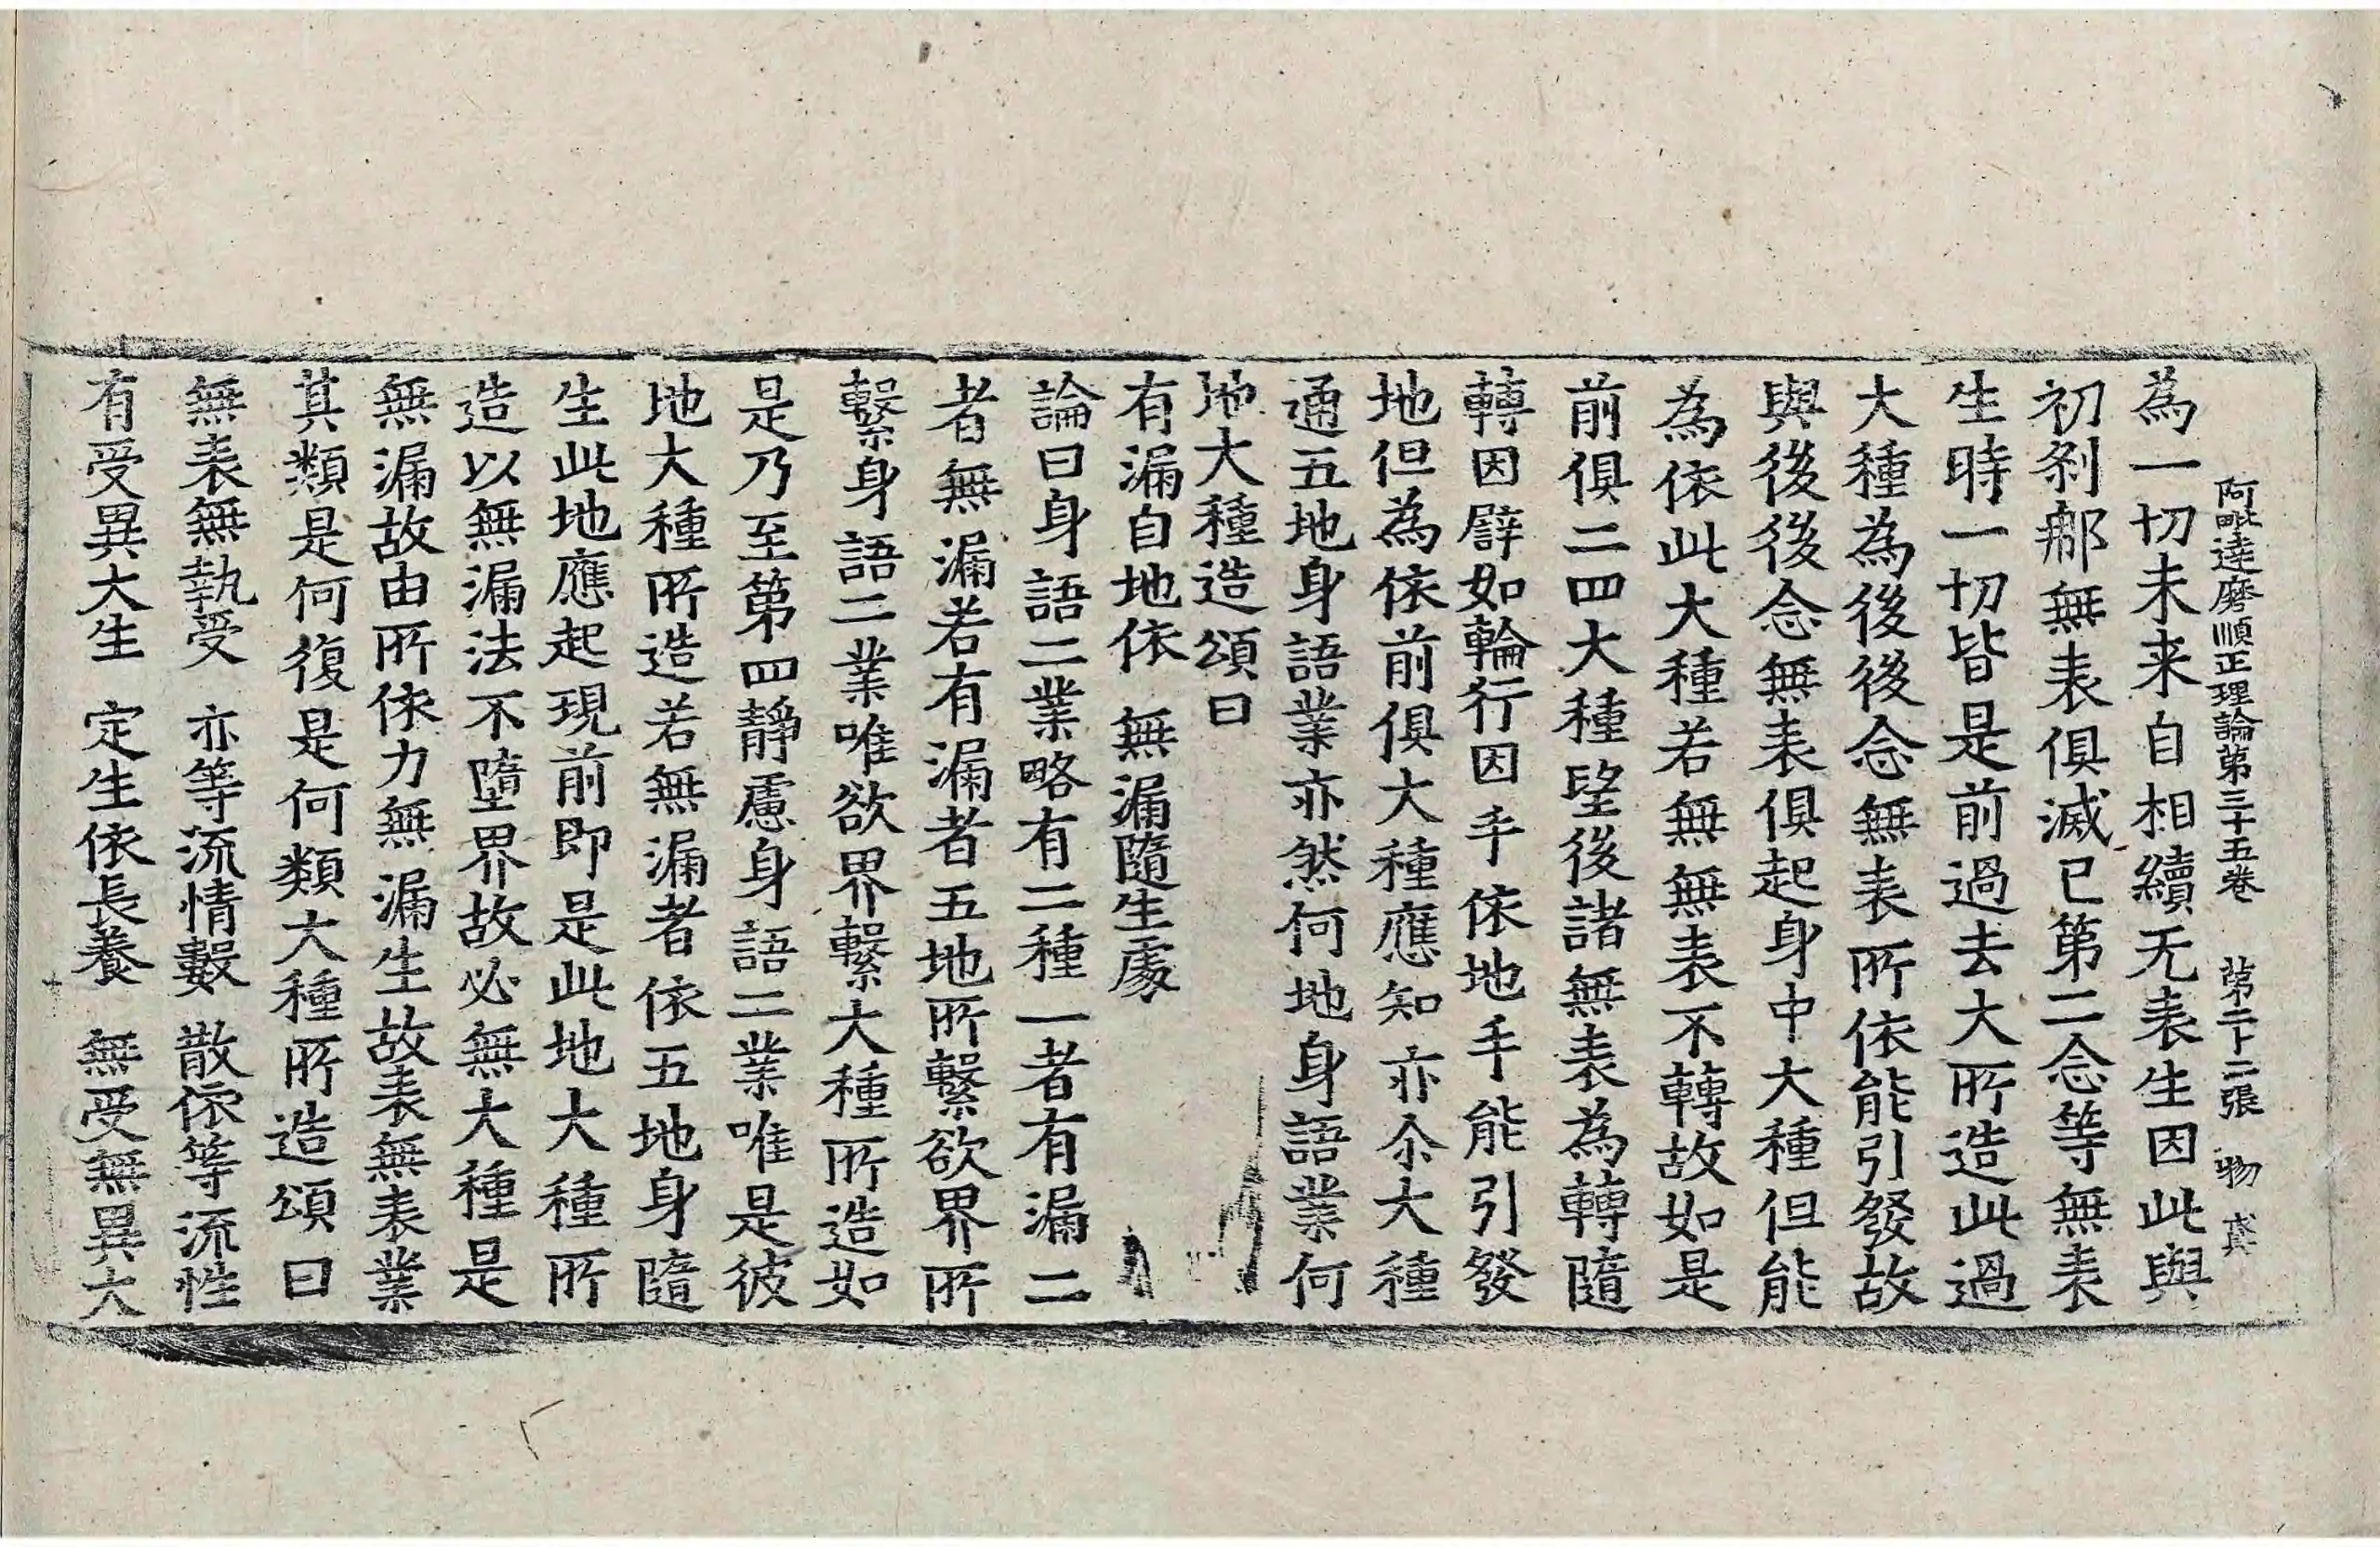 阿毗達磨順正理論第三十五卷 第二十二張 物
為一切未来自相續无表生因此與
初刹那無表俱滅已第二念等無表
生時一切皆是前過去大所造此過
大種為後後念無表所依能引發故
與後後念無表俱起身中大種但能
為依此大種若無無表不轉故如是
前俱二四大種望後諸無表為轉隨
轉因譬如輪行因手依地手能引發
地但為依前俱大種應知亦尒大種
通五地身語業亦然何地身語業何
地大種造頌曰
有漏自地依 無漏隨生處
論曰身語二業略有二種一者有漏二
者無漏若有漏者五地所繫欲界所
繫身語二業唯欲界繫大種所造如
是乃至第四靜慮身語二業唯是彼
地大種所造若無漏者依五地身隨
生此地應起現前即是此地大種所
造以無漏法不墮界故必無大種是
無漏故由所依力無漏生故表無表業
其類是何復是何類大種所造頌曰
無表無執受 亦等流情數 散依等流性
有受異大生 定生依長養 無受無異大